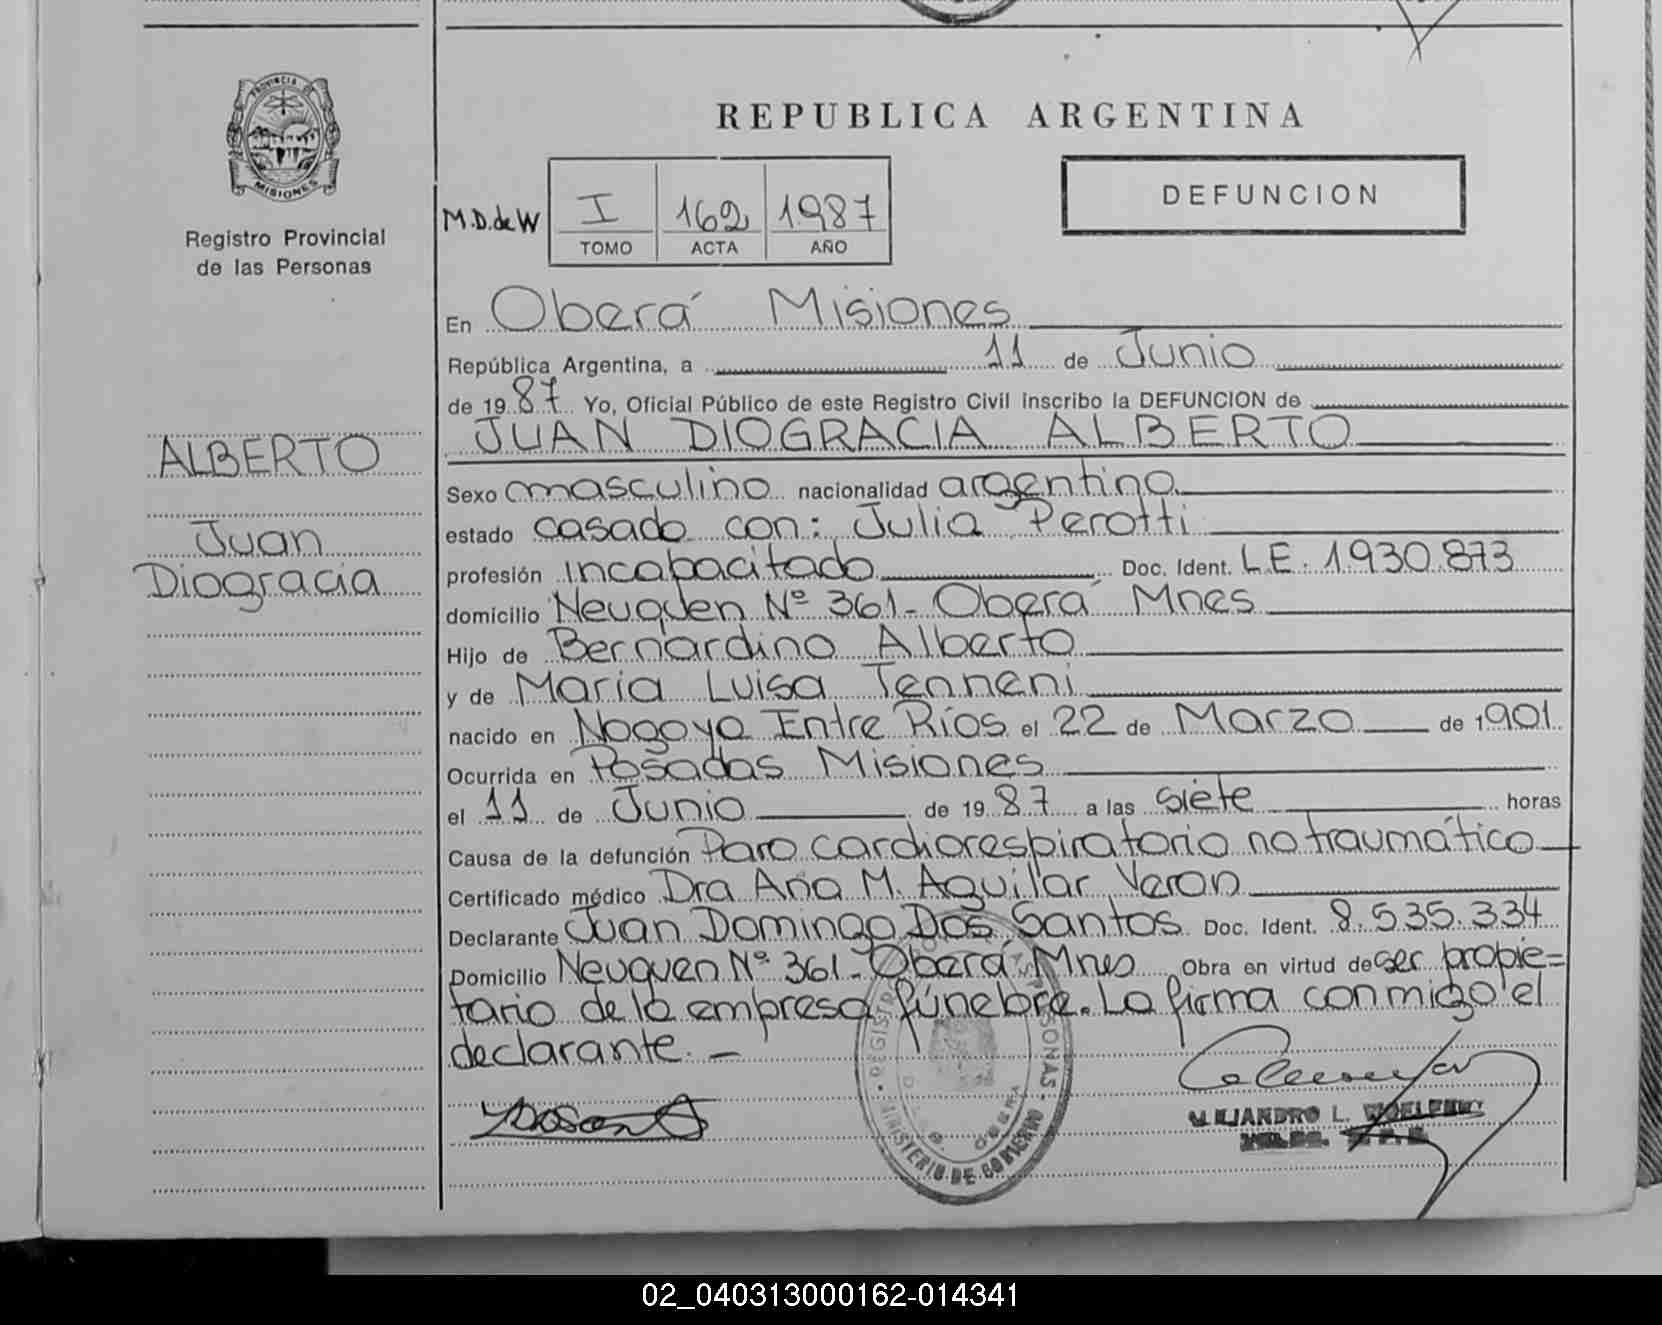 PROVINCIA DE
MISIONES
Registro Provincial
de las Personas
ALBERTO
Juan
Diogracia
REPUBLICA ARGENTINA
DEFUNCION
M.D.de W
I 162 1987
TOMO ACTA AÑO
En Oberá Misiones
República Argentina, a 11 de Junio
de 1987 Yo, Oficial Público de este Registro Civil inscribo la DEFUNCION de
JUAN DIOGRACIA ALBERTO
Sexo masculino nacionalidad argentino
estado casado con: Julia Perotti
profesión incapacitado Doc. Ident. L.E. 1.930.873
domicilio Neuquen Nº 361- Oberá Mnes
Hijo de Bernardino Alberto
y de Maria Luisa Tenneni
nacido en Nogoya Entre Ríos el 22 de Marzo de 1901
Ocurrida en Posadas Misiones
el 11 de Junio de 1987 a las siete horas
Causa de la defunción Paro cardiorespiratorio no traumático
Certificado médico Dra Ana M. Aguilar Veron
Declarante Juan Domingo Dos Santos Doc. Ident. 8.535.334
Domicilio Neuquen Nº 361- Oberá Mnes Obra en virtud de ser propie=
tario de la empresa fúnebre. La firma conmigo el
declarante. -
MINISTERIO DE GOBIERNO
ALEJANDRO L.
02_040313000162-014341